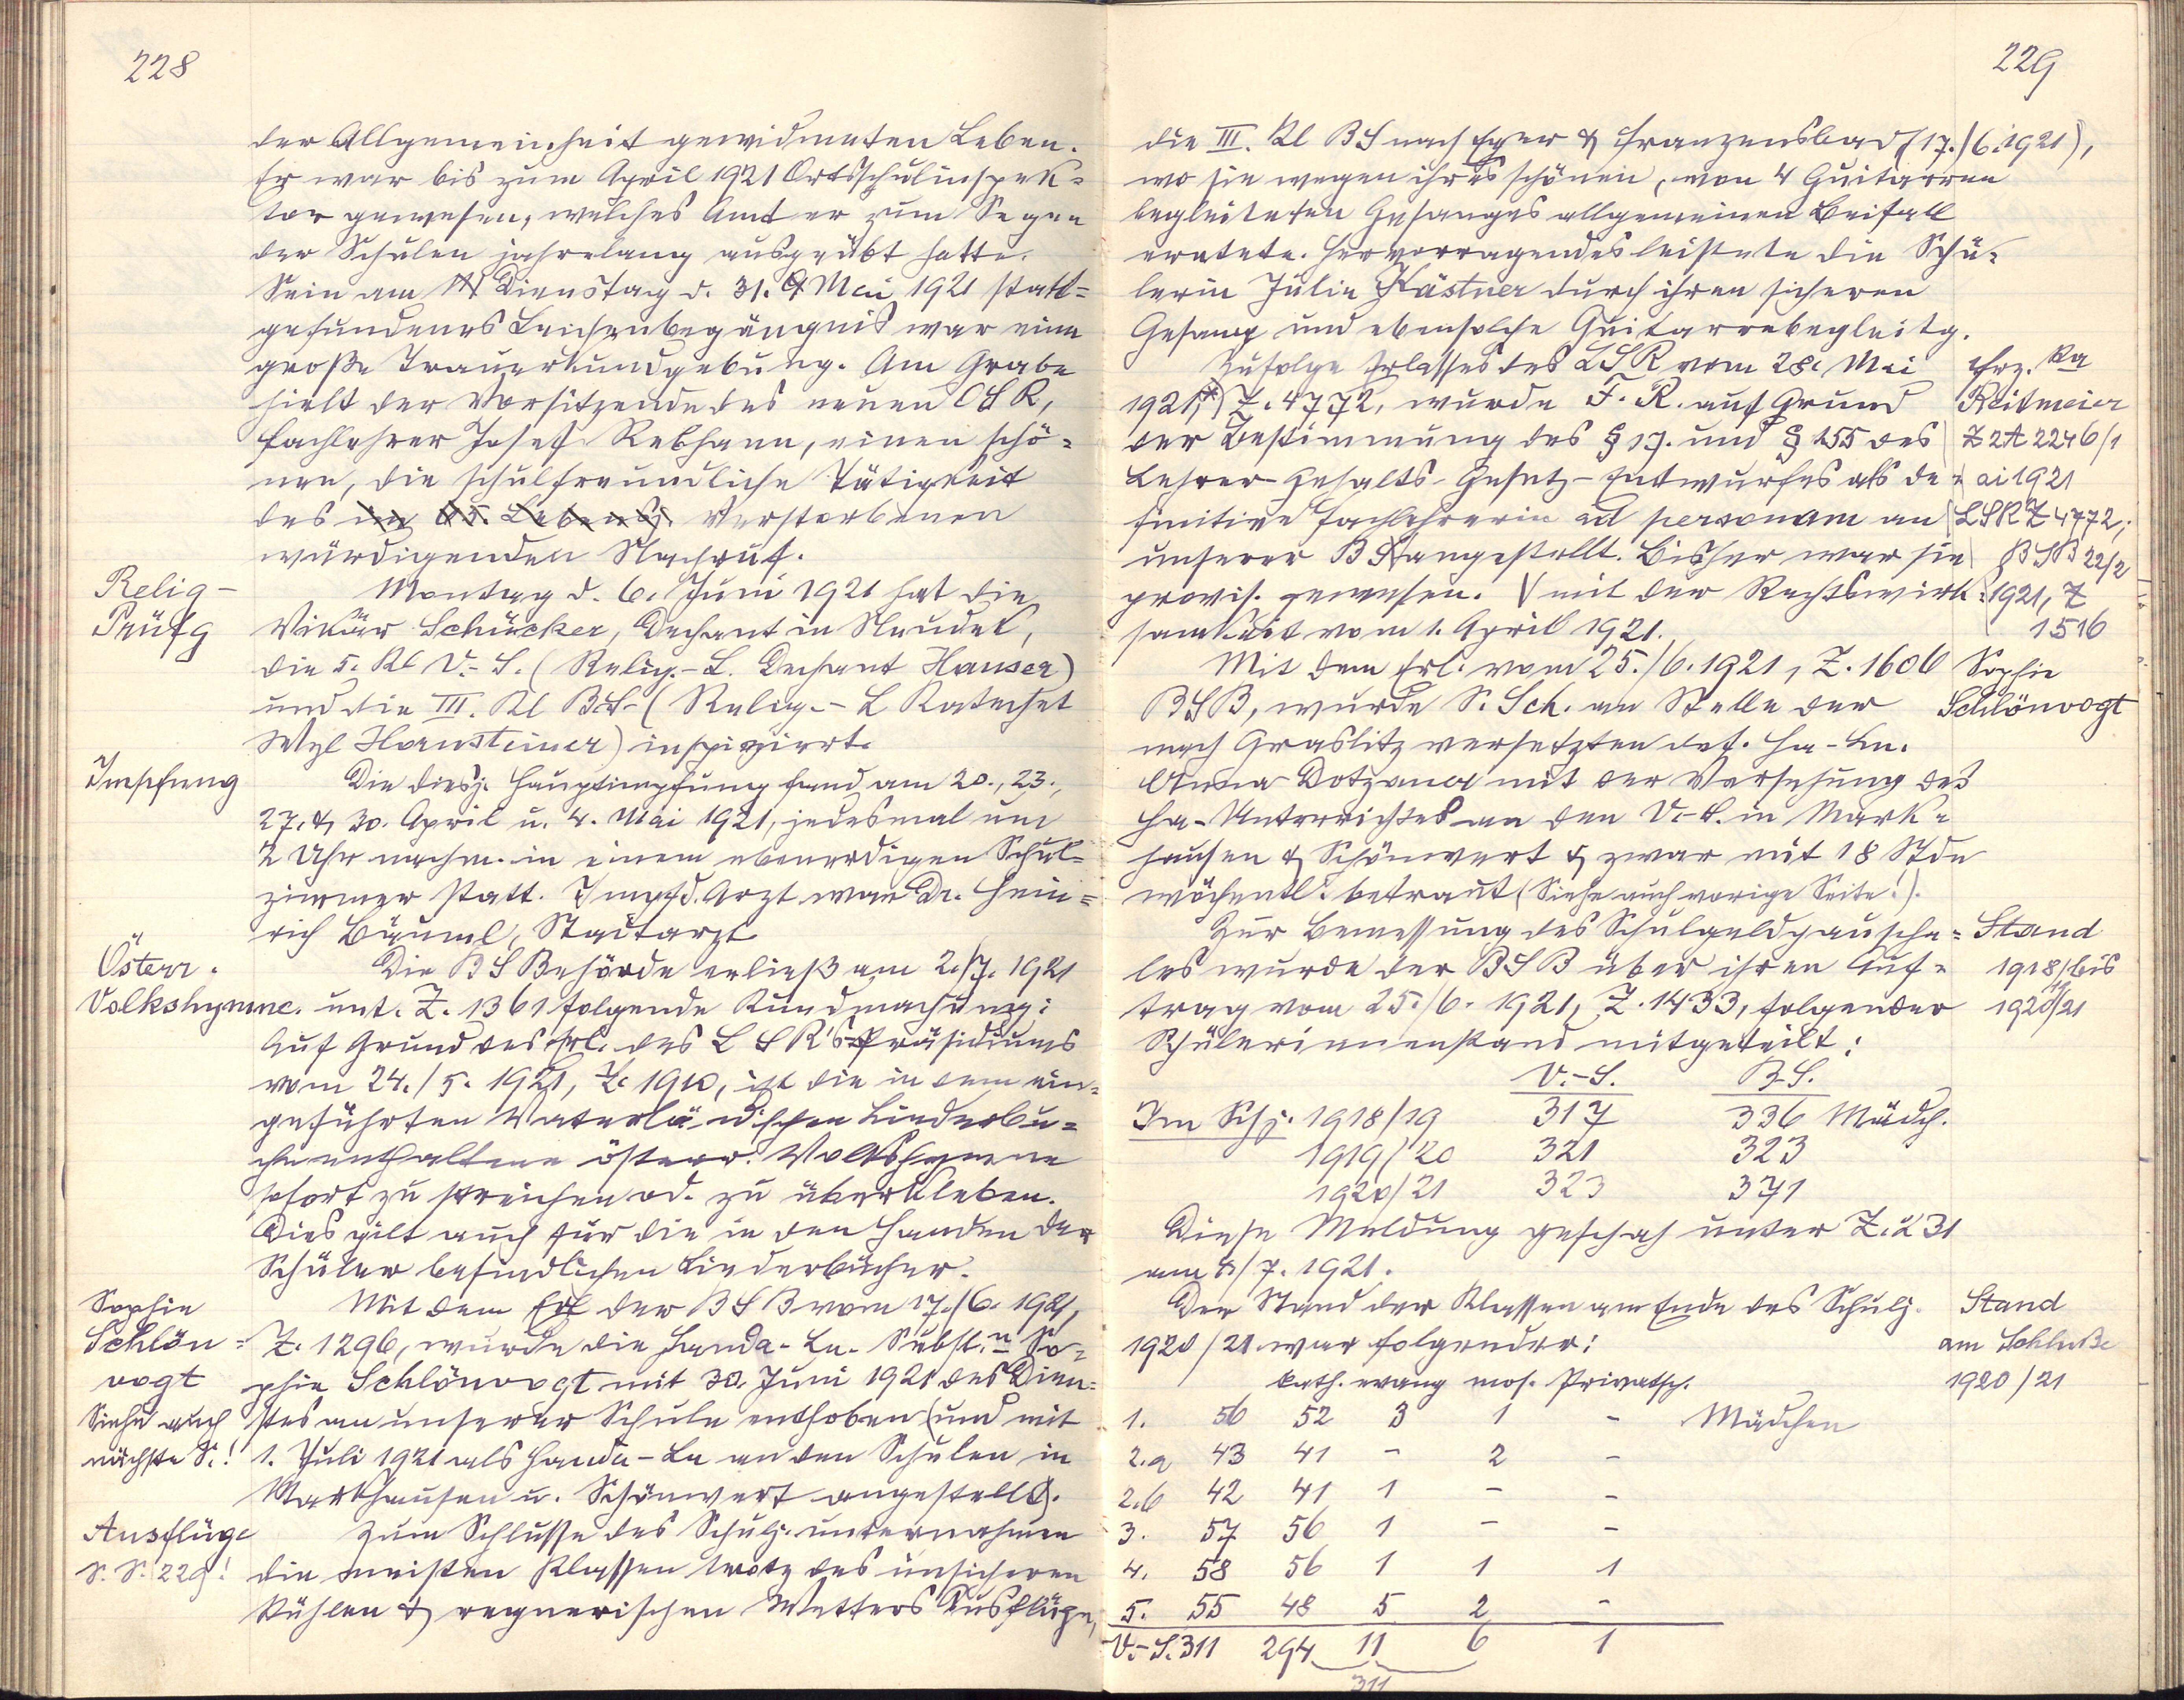 228
der Allgemeinheit gewidmeten Leben.
Er war bis zum April 1921 Ortsschulinspek=
tor gewesen, welches Amt er zum Segen
der Schulen jahrelang ausgeübt hatte.
Sein am Dienstag d. 31. Mai 1921 statt=
gefundenes Leichenbegängnis war eine
große Trauerkundgebung. Am Grabe
hielt der Vorsitzende des neuen OSR,
Fachlehrer Josef Rebhann, einen schö=
nen, die schulfreundliche Tätigkeit
des im 65. Lebensj. Verstorbenen
würdigenden Nachruf.
Relig-
Prüfg
Montag d. 6. Juni 1921 hat die
Vikär Schücker, Dechant in Neudek,
die 5. Kl V.-S. (Relig.-L. Dechant Hauser)
und die III. Kl BS (Relig.-L Katechet
Wzl Hornsteiner) inspiziert.
Impfung
Die diesj. Hauptimpfung fand am 20., 23.,
27. & 30. April u. 4. Mai 1921, jedesmal um
2 Uhr nachm. in einem ebenerdigen Schul=
zimmer statt. Impfd. Arzt war Dr. Hein=
rich Bäuml, Stadtarzt
Österr.
Volkshymne.
Die BSBehörde erließ am 2./7. 1921
unt. Z. 1361 folgende Kundmachung:
Auf Grund des Erl. des LSR's=Präsidiums
vom 24./5. 1921, Z. 1910, ist die in dem ein=
geführten Vaterländischen Liederbu=
che enthaltene österr. Volkshymne
sofort zu streichen od. zu überkleben.
Dies gilt auch für die in den Handen der
Schüler befindlichen Liederbücher.
Sophie
Schlön=
vogt
Siehe auch
nächste S.!
Mit dem Erl der BSB vom 17./6. 1921,
Z. 1296, wurde die Handa-Ln-Subst.n So=
phie Schlönvogt mit 30. Juni 1921 des Dien=
stes an unserer Schule enthoben (und mit
1. Juli 1921 als Handa-Ln an den Schulen in
Markhausen u. Schönwert angestellt).
Ausflüge
S. S. 229!
Zum Schlusse des Schulj. unternahmen
die meisten Klassen trotz des unsicheren
kühlen & regnerischen Wetters Ausflüge,
229
die III. Kl BS nach Eger & Franzensbad (17./6. 1921),
wo sie wegen ihres schönen, von 4 Guitarren
begleiteten Gesanges allgemeinen Beifall
erntete. Hervorragendes leistete die Schü=
lerin Julie Kästner durch ihren sicheren
Gesang und ebensolche Guitarrebegleitg.
Zufolge Erlasses des LSR vom 28. Mai
1921,*) Z. 4772, wurde F. R. auf Grund
der Bestimmung des § 17. und § 155 des
Lehrer-Gehalts-Gesetz-Entwurfes als de=
finitive Fachlehrerin ad personam an
unserer BS angestellt. Bisher war sie
provis. gewesen. V mit der Rechtswirk=
samkeit vom 1. April 1921.
Frz. Ka
Reitmeier
Z 2A 2246/1
ai 1921
LSR Z 4772;
BSB 22/2
1921, Z
1516
Mit dem Erl. vom 25./6. 1921, Z. 1606
BSB, wurde S. Sch. an Stelle der
nach Graslitz versetzten def. Ha-Ln.
Anna Dotzauer mit der Versehung des
Ha-Unterrichtes an den V.-S. in Mark=
hausen & Schönwert & zwar mit 18 Stdn
wöchentl. betraut (Siehe auch vorige Seite!).
Sophie
Schlönvogt
Zur Bemessung des Schulgeldpauscha=
les wurde der BSB über ihren Auf=
trag vom 25./6. 1921, Z. 1433, folgender
Schülerinnenstand mitgeteilt:
Stand
1918/19 bis
1920/21
V.-S. B.S.
Im Schj. 1918/19 317 336 Mädch.
1919/20 321 323
1920/21 323 371
Diese Meldung geschah unter Z. 231
am 8/7. 1921.
Der Stand der Klassen am Ende des Schulj.
1920/21 war folgender:
Stand
am Schluße
1920/21
kath. evang mos. Privatsch.
1. 56 52 3 1 - Mädchen
2.a 43 41 - 2 -
2.b 42 41 1 - -
3. 57 56 1 - -
4. 58 56 1 1 1
5. 55 48 5 2 -
V.-S. 311 294 11 6 1
311